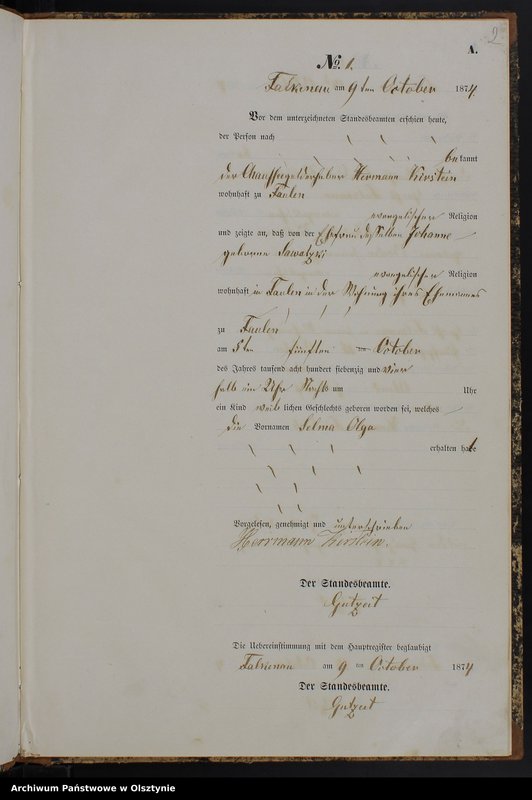 2
A.
No. 1.
Falkenau am 9ten October 1874.
Vor dem unterzeichneten Standesbeamten erschien heute,
der Person nach
bekannt
der Chausseegelderheber Hermann Kirstein
wohnhaft zu Faulen
evangelischer Religion
und zeigte an, daß von der Ehefrau desselben Johanne
geborene Sawatzki
evangelischer Religion
wohnhaft in Faulen in der Wohnung ihres Ehemannes
zu Faulen
am 5ten fünften October
des Jahres tausend acht hundert siebenzig und vier
halb ein Uhr Nachts um Uhr
ein Kind weiblichen Geschlechts geboren worden sei, welches
die Vornamen Selma Olga
erhalten habe
Vorgelesen, genehmigt und unterschrieben
Herrmann Kirstein.
Der Standesbeamte.
Gutzeit
Die Uebereinstimmung mit dem Hauptregister beglaubigt
Falkenau am 9 ten October 1874
Der Standesbeamte.
Gutzeit
Archiwum Państwowe w Olsztynie